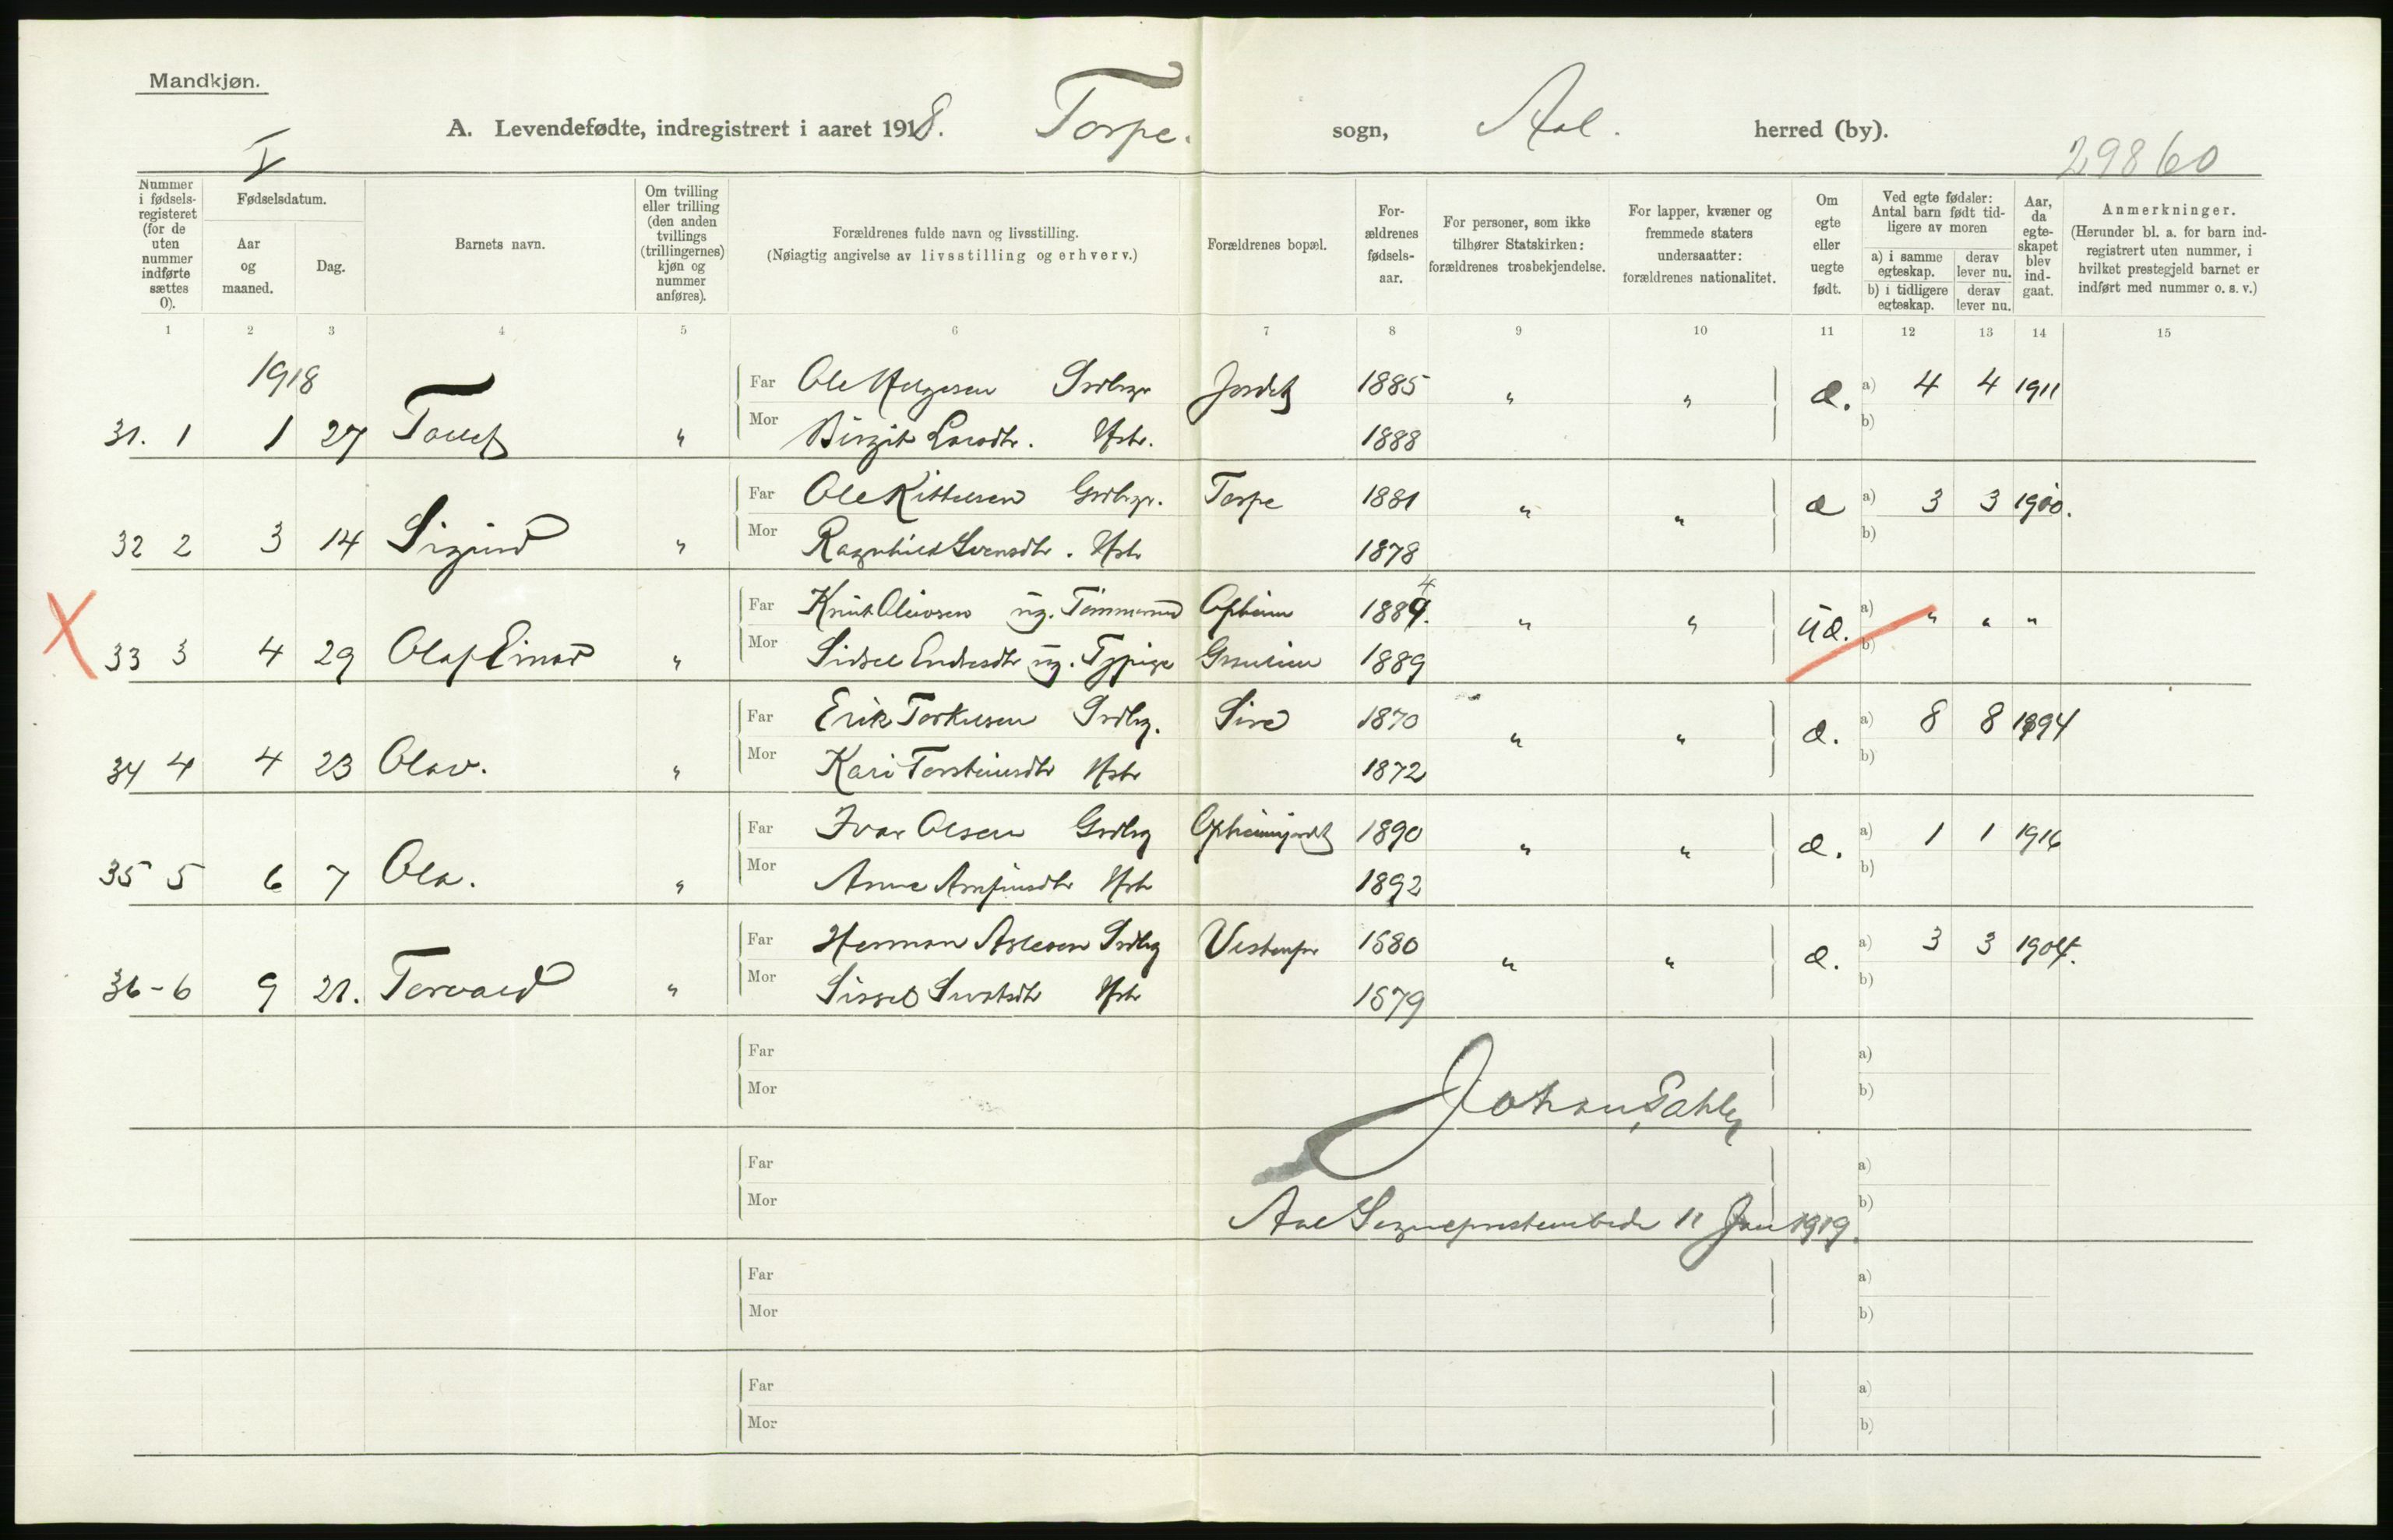 Mandkjøn.
A. Levendefødte, indregistrert i aaret 1918. Torpe. sogn, Aal. herred (by).
I
29860
Nummer i fødselsregisteret (for de uten nummer indførte sættes 0).
Fødselsdatum.
Aar og maaned.
Dag.
Barnets navn.
Om tvilling eller trilling (den anden tvillings (trillingernes) kjøn og nummer anføres).
Forældrenes fulde navn og livsstilling.
(Nøiagtig angivelse av livsstilling og erhverv.)
Forældrenes bopæl.
Forældrenes fødselsaar.
For personer, som ikke tilhører Statskirken: forældrenes trosbekjendelse.
For lapper, kvæner og fremmede staters undersaatter: forældrenes nationalitet.
Om egte eller uegte født.
Ved egte fødsler: Antal barn født tidligere av moren
a) i samme egteskap. derav lever nu.
b) i tidligere egteskap. derav lever nu.
Aar, da egteskapet blev indgaat.
Anmerkninger.
(Herunder bl. a. for barn indregistrert uten nummer, i hvilket prestegjeld barnet er indført med nummer o. s. v.)
1 2 3 4 5 6 7 8 9 10 11 12 13 14 15
1918
Far Ole Helgesen Grdbrgr Jordet 1885 " " æ. a) 4 4 1911
31. 1 1 27 " Mor Birgit Larsdtr. Hstr. 1888 b)
Far Ole Kittelsen Grdbrgr. Torpe 1881 " " æ a) 3 3 1900.
32 2 3 14 Sigurd " Mor Ragnhild Svensdtr. Hstr 1878 b)
Far Knut Oleivsen ug. Tømmermd Opheim 1884. " " uæ. a) " " "
X 33 3 4 29 Olaf Einar " Mor Sidsel Endresdtr ug. Mor 1889 b)
Far Erik Torkelsen Grdbrg. Sire 1870 " " æ. a) 8 8 1894
34 4 4 23 Olav. " Mor Kari Torsteinsdtr Hstr 1872 b)
Far Ivar Olsen Grdbrg Opheimjordet 1890 " " æ. a) 1 1 1916
35 5 6 7 Ola. " Mor Anne Arnfinsdtr Hstr 1892 b)
Far Herman Aslesen Grdbrg 1880 " " æ. a) 3 3 1904.
36-6 9 21. Torvald " Mor Sissel Hstr 1879 b)
Far a)
Mor b)
Johan
Far a)
Mor b)
Aal Sogneprestembede 11 Jan 1919.
Far a)
Mor b)
Far a)
Mor b)